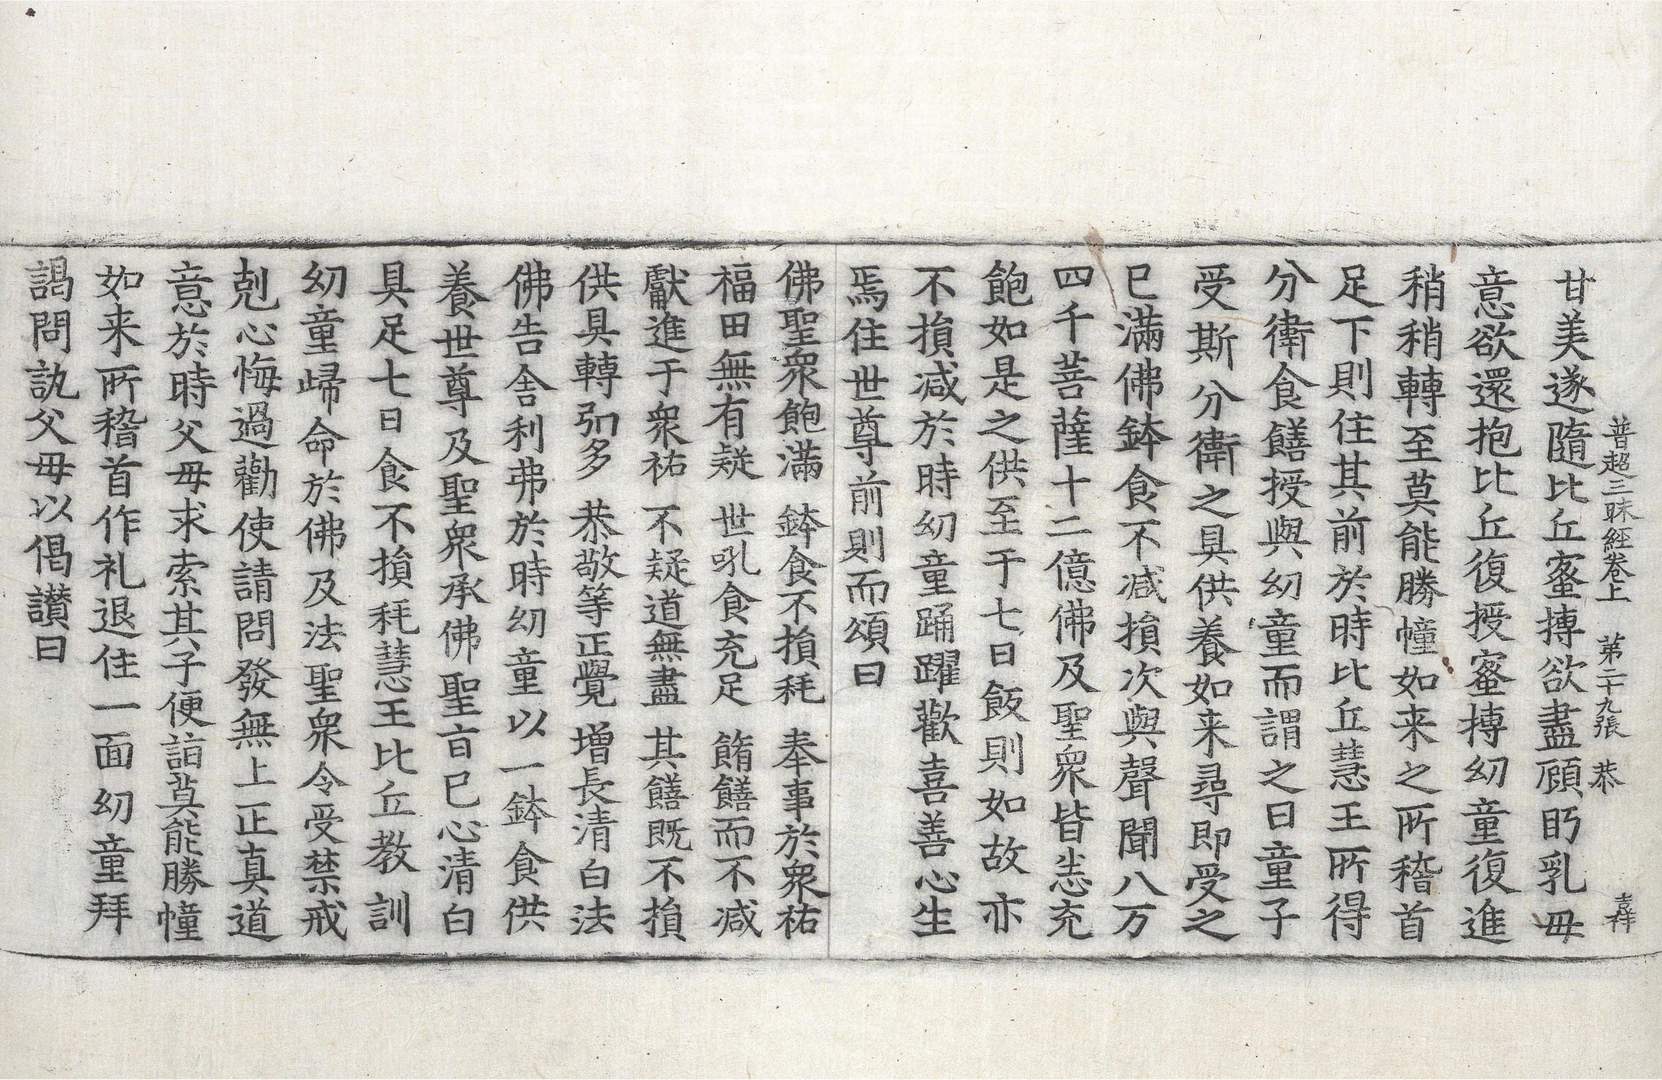 普超三昧經卷上 第二十九張 恭 吉祥
甘美遂隨比丘蜜摶欲盡顧眄乳母
意欲還抱比丘復授蜜摶幼童復進
稍稍轉至莫能勝幢如来之所稽首
足下則住其前於時比丘慧王所得
分衛食饍授與幼童而謂之曰童子
受斯分衛之具供養如来尋即受之
已滿佛鉢食不减損次與聲聞八万
四千菩薩十二億佛及聖衆皆悉充
飽如是之供至于七日飯則如故亦
不損减於時幼童踊躍歡喜善心生
焉住世尊前則而頌曰
佛聖衆飽滿 鉢食不損耗 奉事於衆祐
福田無有疑 世吼食充足 餚饍而不减
獻進于衆祐 不疑道無盡 其饍既不損
供具轉弘多 恭敬等正覺 增長清白法
佛告舍利弗於時幼童以一鉢食供
養世尊及聖衆承佛聖旨已心清白
具足七日食不損耗慧王比丘教訓
幼童歸命於佛及法聖衆令受禁戒
剋心悔過勸使請問發無上正真道
意於時父母求索其子便詣莫能勝幢
如来所稽首作礼退住一面幼童拜
謁問訊父母以偈讃曰